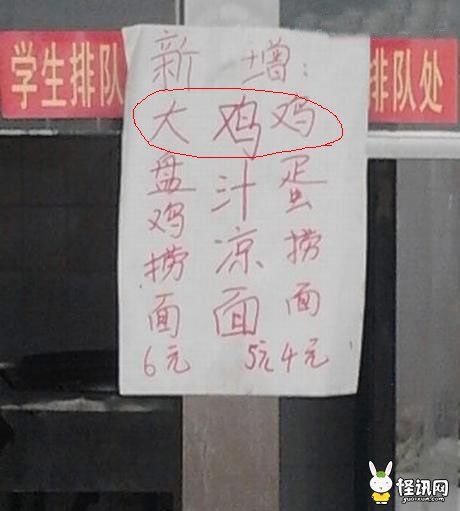 学生排队
排队处
新增:
大盘鸡捞面
6元
鸡汁凉面
5元
鸡蛋捞面
4元
怪讯网
guaixun.com